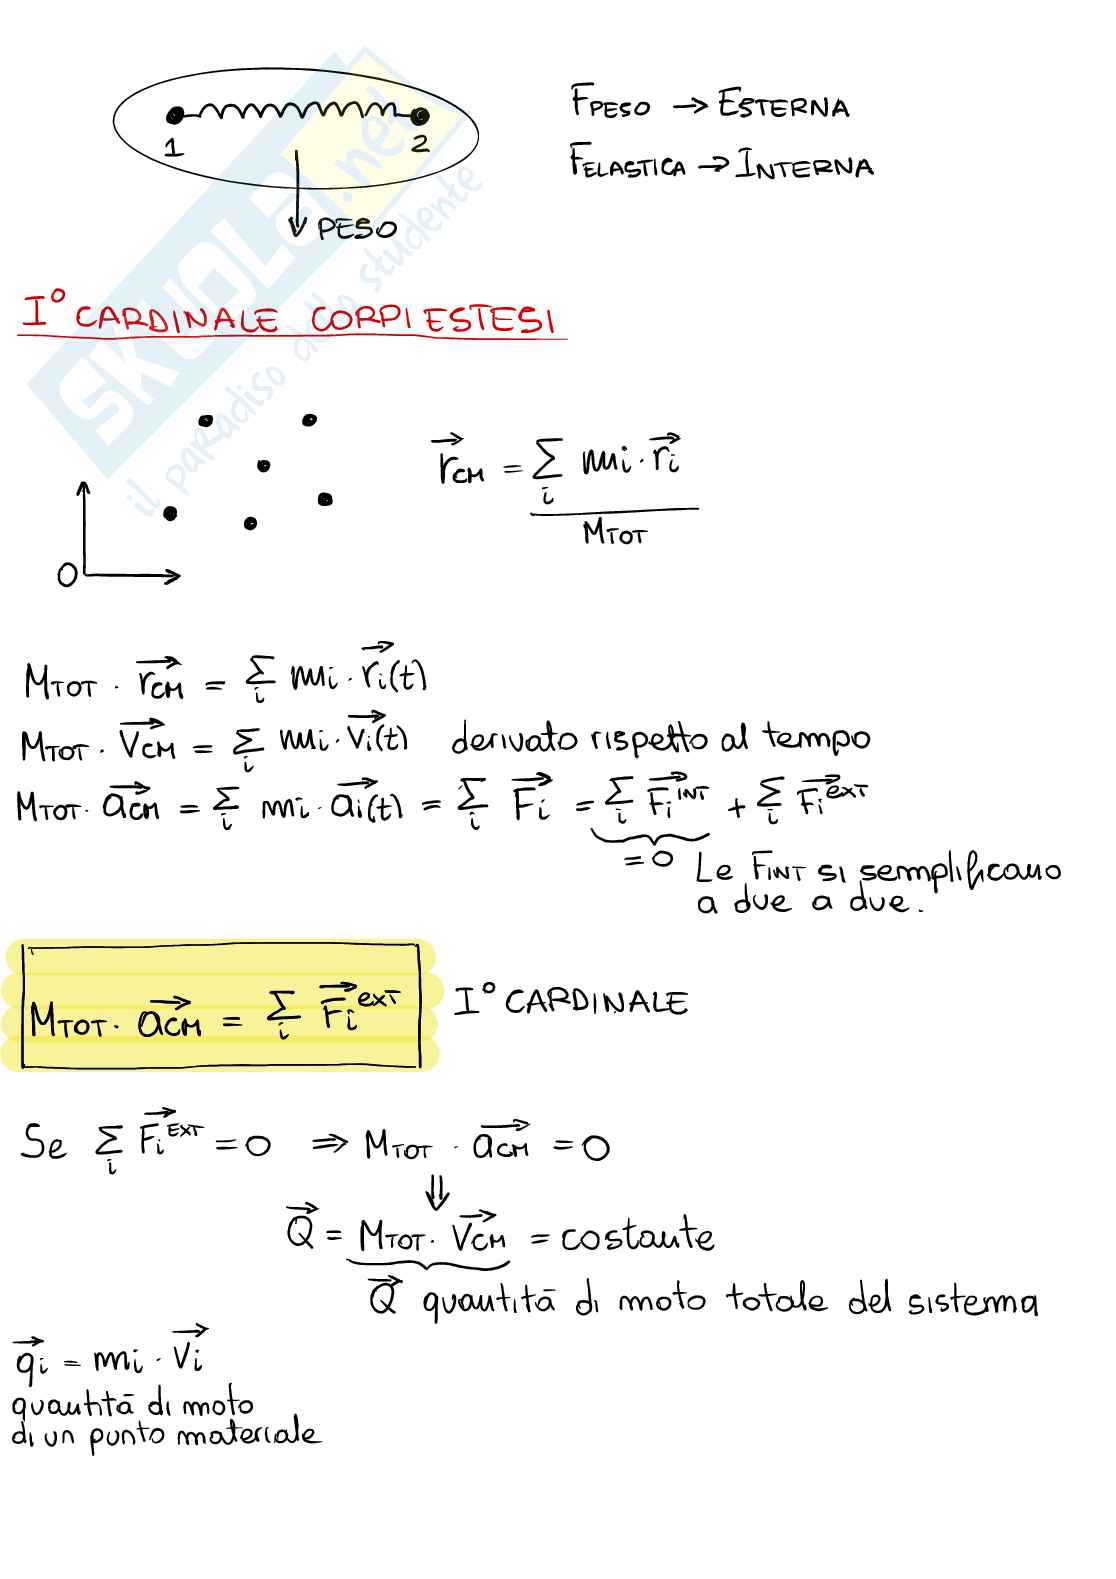 F PESO → ESTERNA
F ELASTICA → INTERNA
1 2
PESO
SKUOLA.net
il paradiso dello studente
I° CARDINALE CORPI ESTESI
r⃗CM = Σi mi · r⃗i / MTOT
O
MTOT · r⃗CM = Σi mi · r⃗i(t)
MTOT · v⃗CM = Σi mi · v⃗i(t) derivato rispetto al tempo
MTOT · a⃗CM = Σi mi · a⃗i(t) = Σi F⃗i = Σi F⃗i^INT + Σi F⃗i^ext
= 0 Le FINT si semplificano
a due a due.
MTOT · a⃗CM = Σi F⃗i^ext I° CARDINALE
Se Σi F⃗i^EXT = 0 ⇒ MTOT · a⃗CM = 0
⇓
Q⃗ = MTOT · v⃗CM = costante
Q⃗ quantità di moto totale del sistema
q⃗i = mi · v⃗i
quantità di moto
di un punto materiale